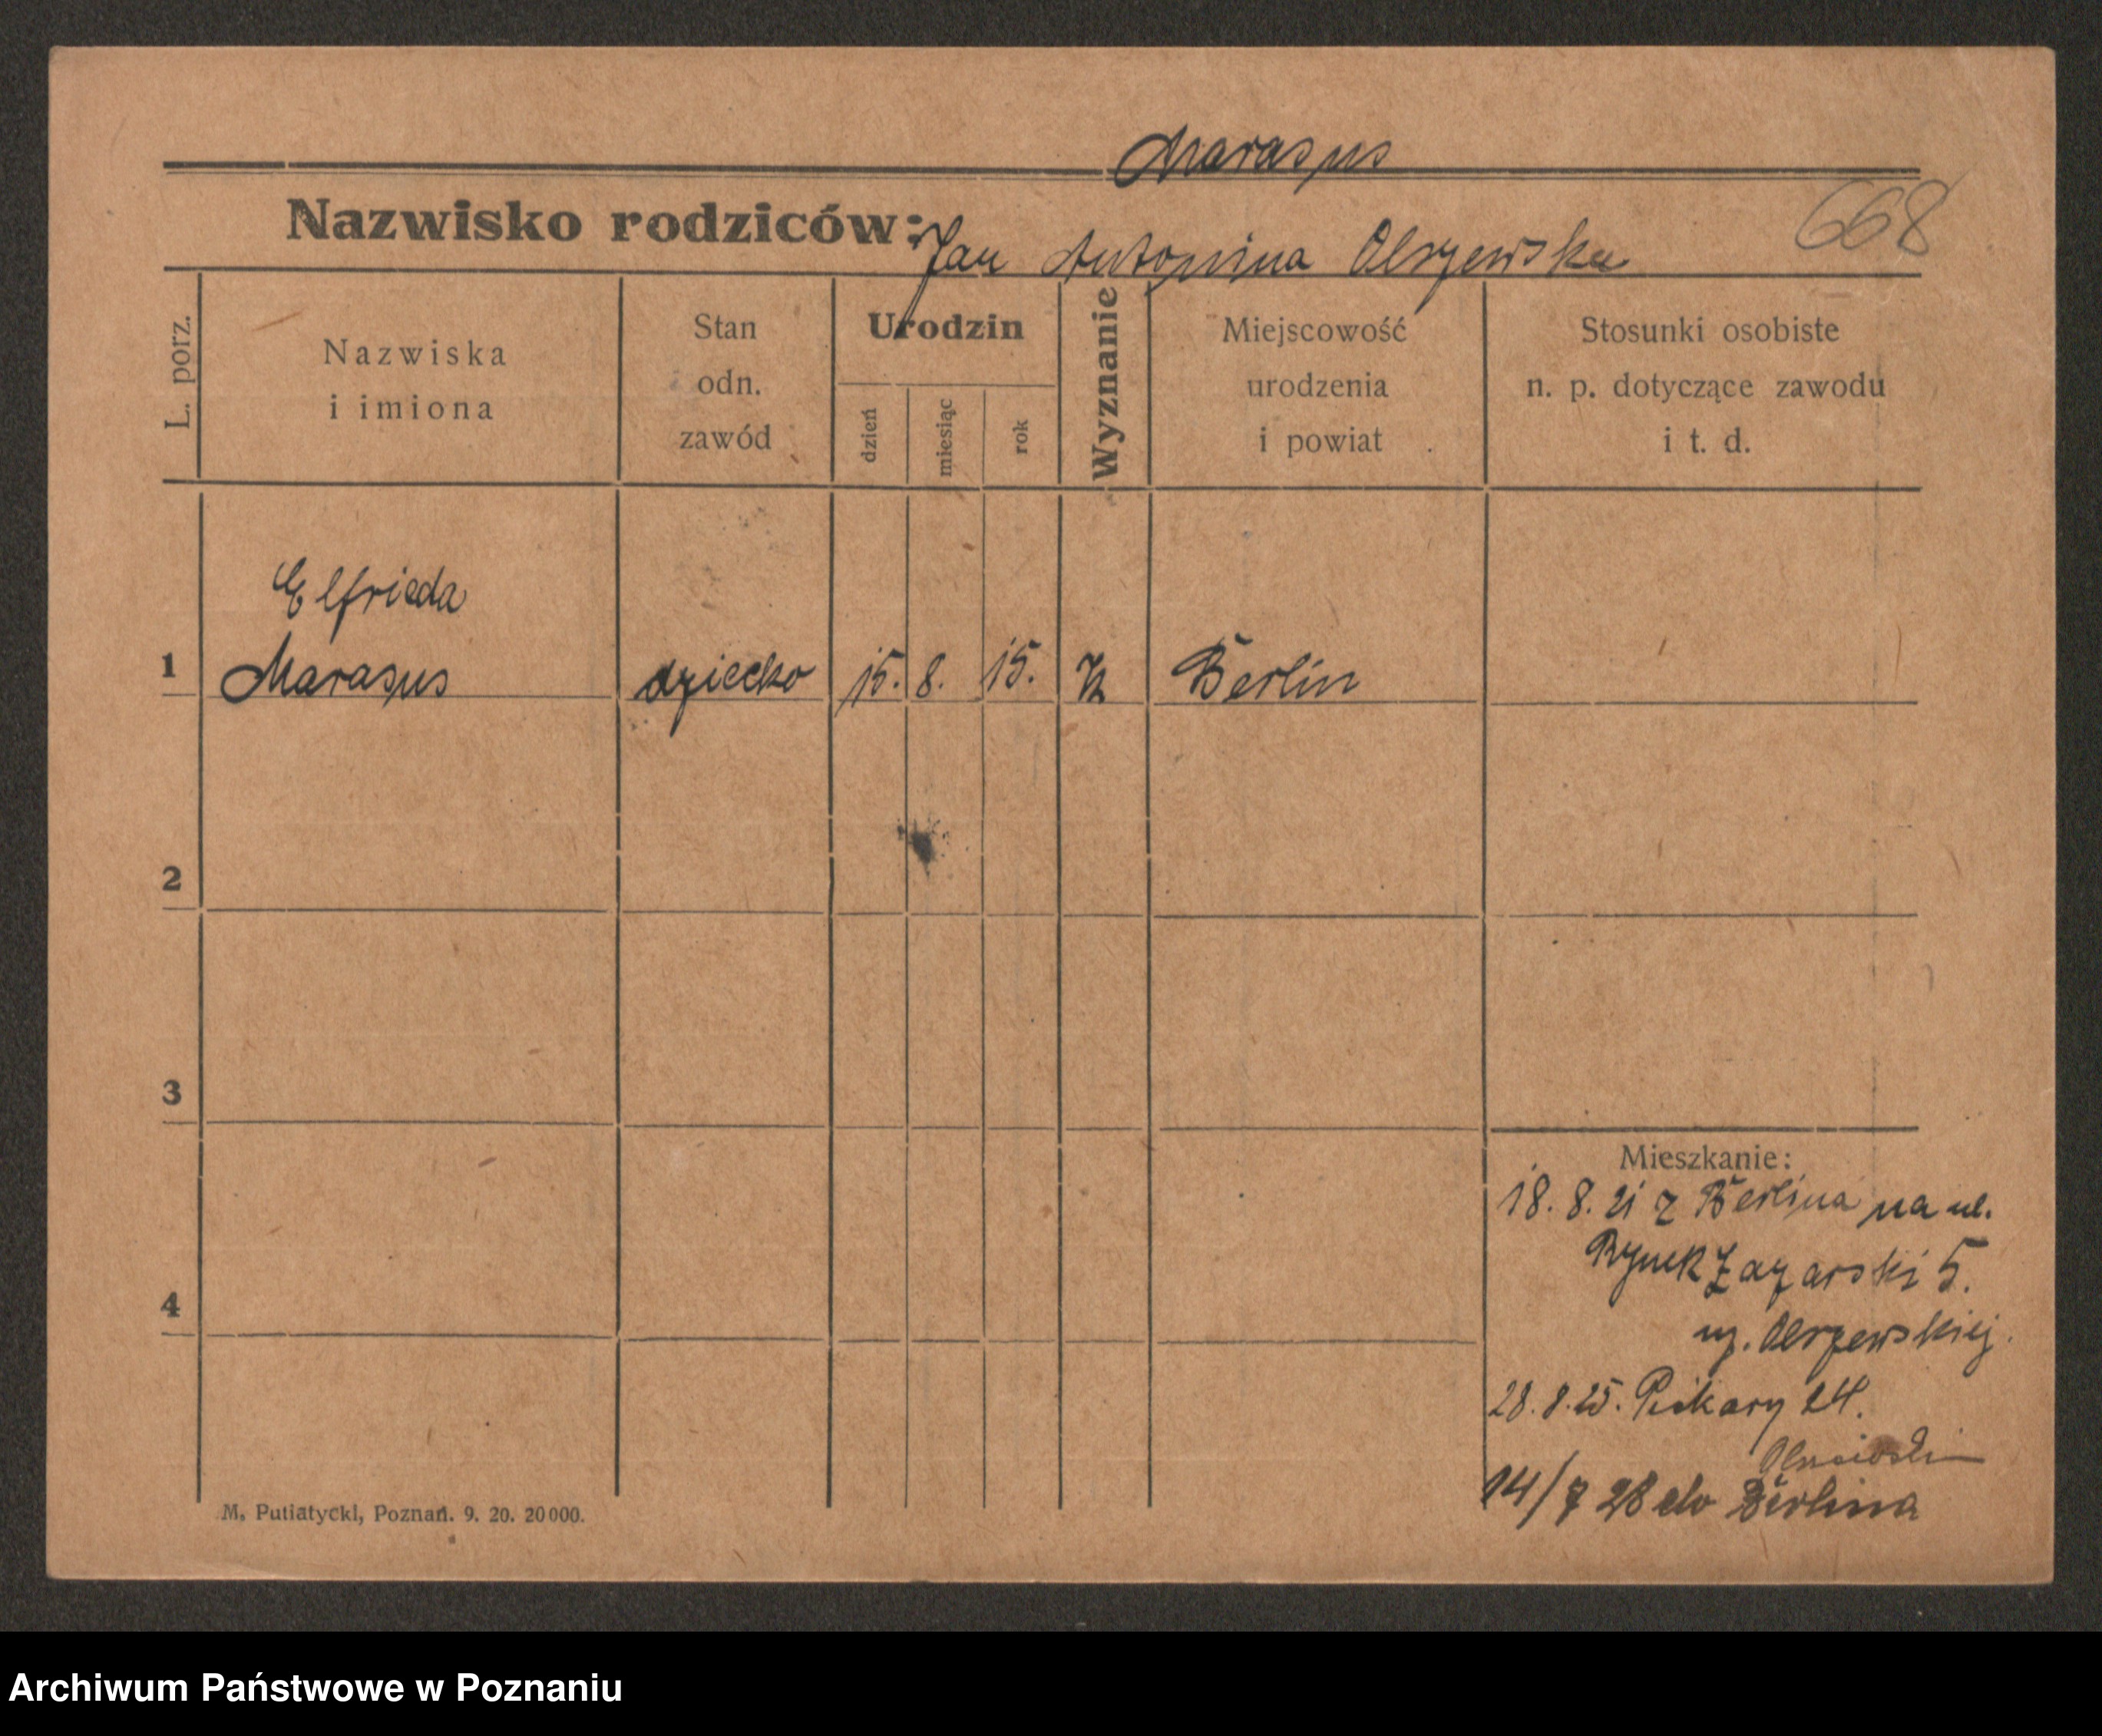 Marasus
668
Nazwisko rodziców: Jan Antonina Olszewska
L. porz.
Nazwiska
i imiona
Stan
odn.
zawód
Urodzin
dzień
miesiąc
rok
Wyznanie
Miejscowość
urodzenia
i powiat
Stosunki osobiste
n. p. dotyczące zawodu
i t. d.
Elfrieda
1 Marasus dziecko 15. 8. 15. K Berlin
2
3
Mieszkanie:
18. 8. 21 z Berlina na ul.
Rynek Łazarski 5.
4
Olszewskiej.
28. 8. 25. Piekary 24.
14/7 28 do Berlina
M. Putiatycki, Poznań. 9. 20. 20000.
Archiwum Państwowe w Poznaniu